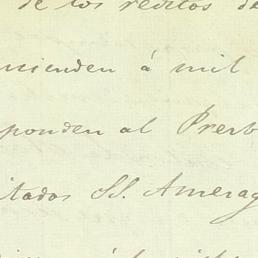 de los reditos de
ncienden á mil
ponden al Presb
itados SS. Amerag